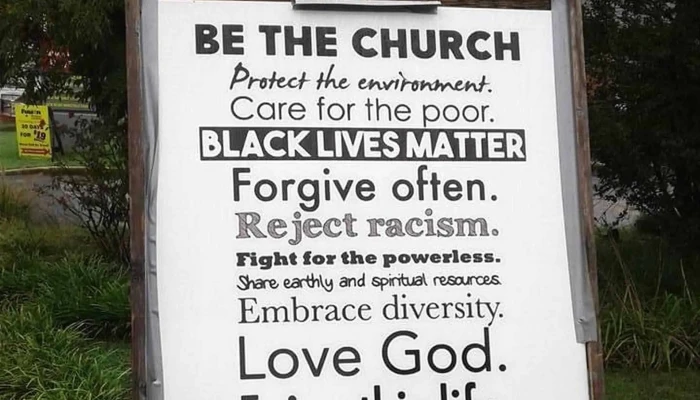 BE THE CHURCH
Protect the environment.
Care for the poor.
BLACK LIVES MATTER
Forgive often.
Reject racism.
Fight for the powerless.
Share earthly and spiritual resources.
Embrace diversity.
Love God.
Enjoy this life.